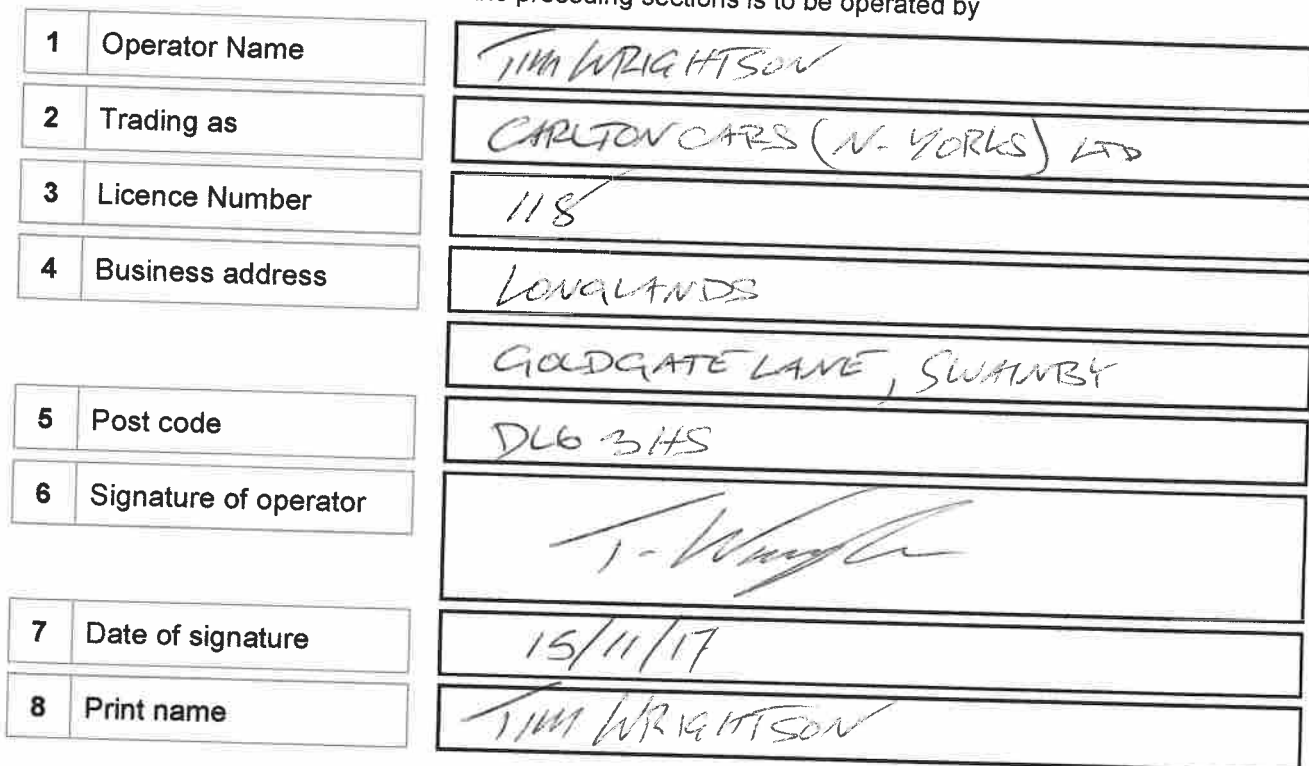 the preceding sections is to be operated by
1 Operator Name TIM WRIGHTSON
2 Trading as CARLTON CARS (N. YORKS) LTD
3 Licence Number 118
4 Business address LONGLANDS
GOLDGATE LANE, SWAINBY
5 Post code DL6 3HS
6 Signature of operator T. Wrightson
7 Date of signature 15/11/17
8 Print name TIM WRIGHTSON